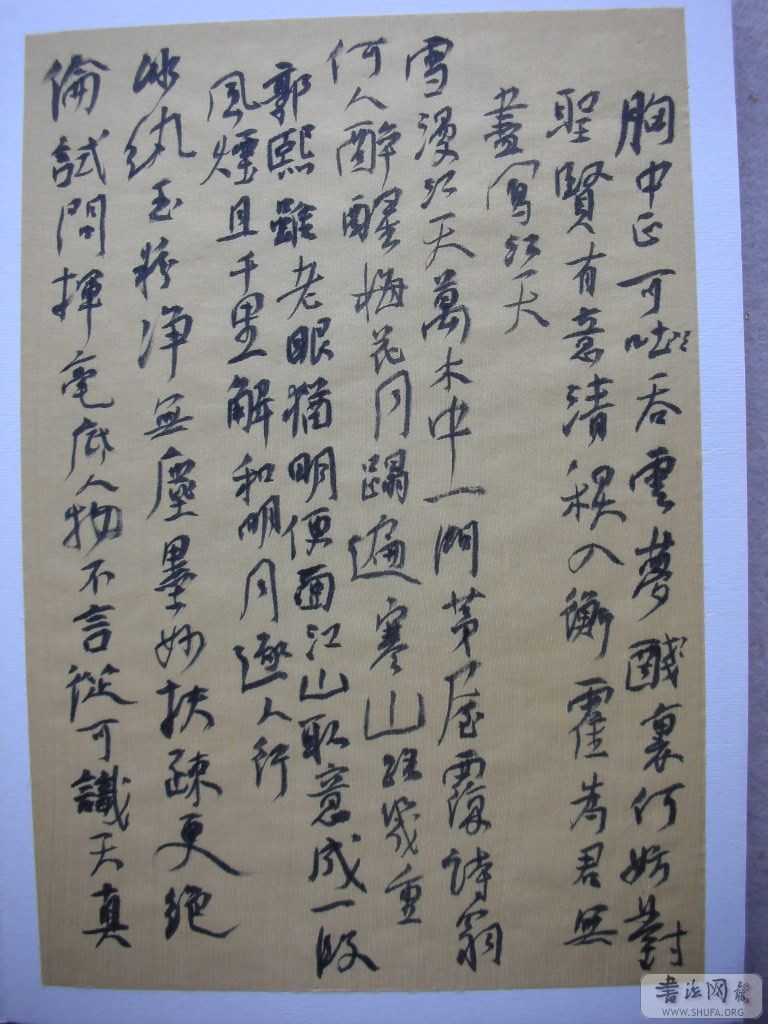 胸中正可吐吞雲夢醆裏何妨對
聖賢有意清穐入衡霍為君無
盡寫江天
雪漫江天萬木中一間茅屋覆詩翁
何人醉醒梅花月蹋遍寒山經幾重
郭熙雖老眼猶明便面江山取意成一段
風煙且千里解和明月逐人行
冰紈玉净無塵墨妙扶疎更絕
倫試問揮毫底人物不言從可識天真
書法网
WWW.SHUFA.ORG